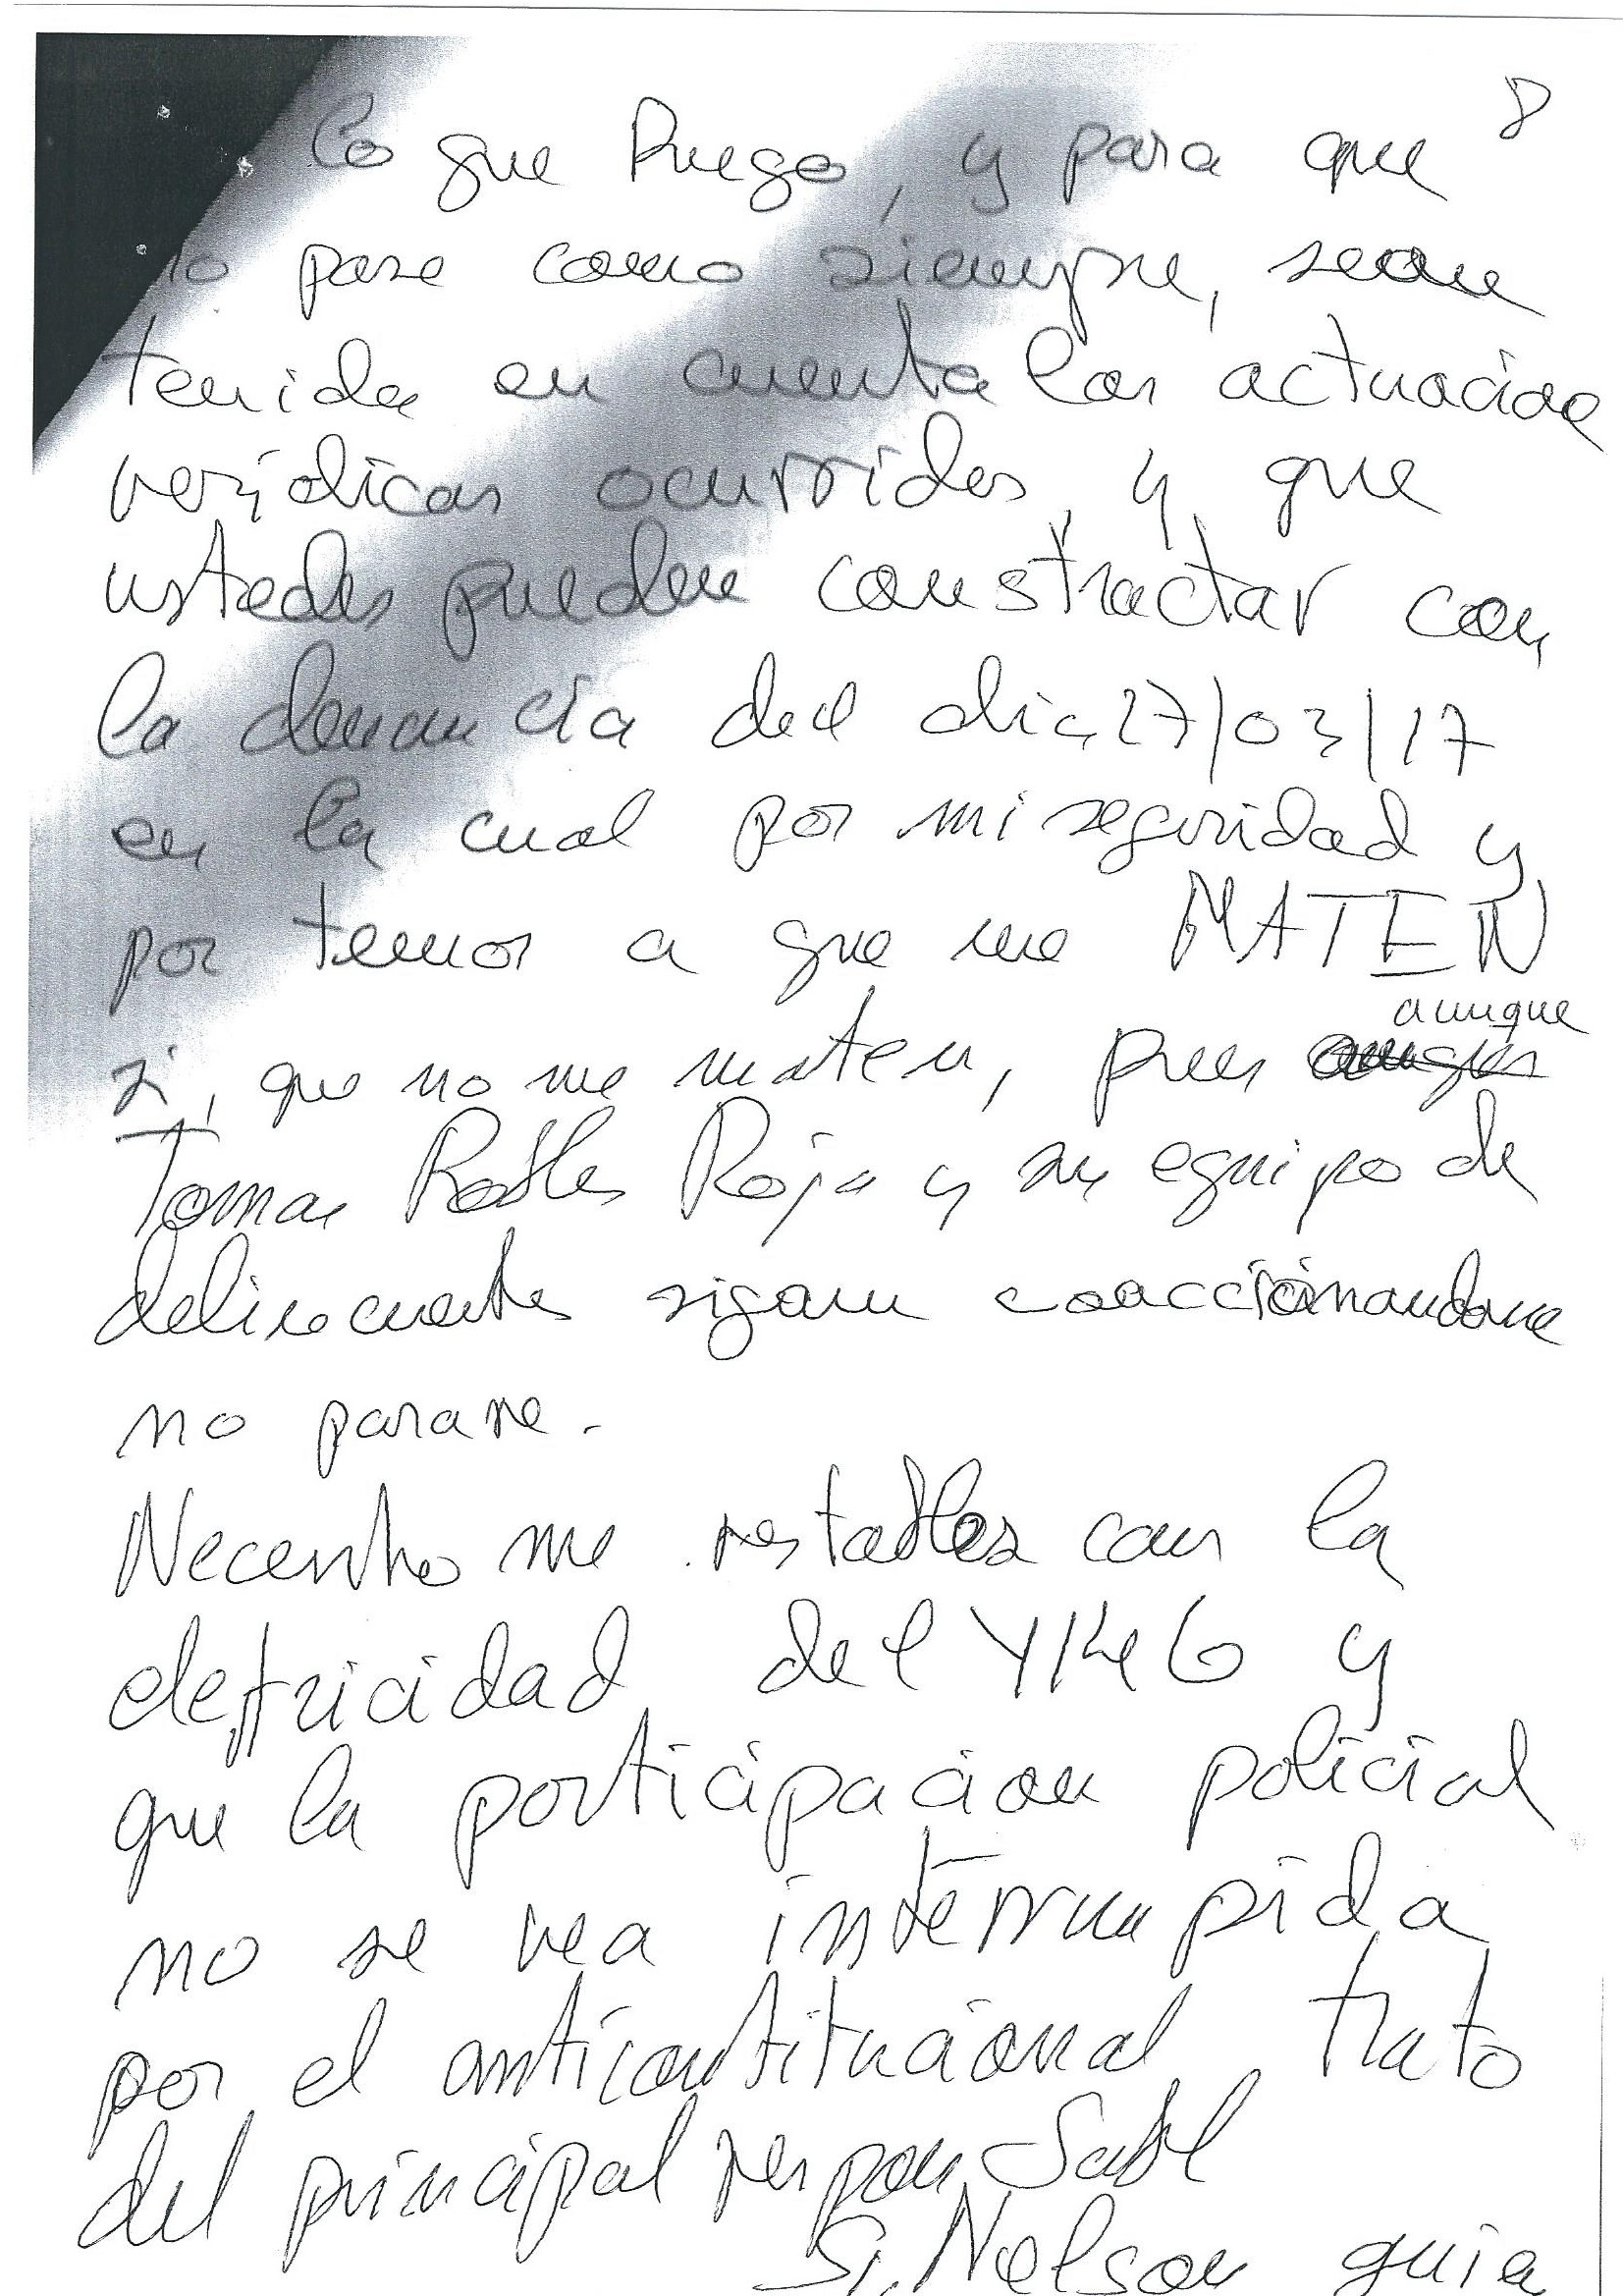 8
Lo que Ruego, y para que
no pase como siempre, sean
tenida en cuenta las actuacione
verídicas ocurridas, y que
ustedes pueden constractar con
la denuncia del dia 27/03/17
en la cual por mi seguridad y
por temor a que me MATEN
si, que no me maten, pues aunque
Tomas Robles Roja y su equipo de
delincuentes sigan coaccionandome
no parare.
Necesito me restablezcan la
eletricidad del y
que la participacion policial
no se vea interrumpida
por el anticontitucional trato
del principal responsabl
Sr. Nelson quien